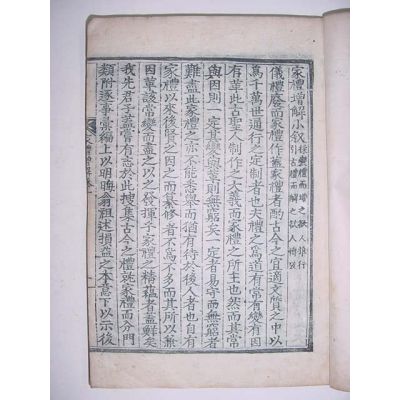 家禮增解小叙
採變禮而增之欲人
引古禮而解之欲人
儀禮廢而家禮作蓋家禮者酌古今之宜適文質之中以
爲千萬世通行之定制者也夫禮之爲道有常有變有因
有革此古聖人制作之大義而家禮之所主也然而其常
與因則一定而變與革則無窮矣一定者易守而無窮者
難盡此家禮之亦不能悉擧而猶有待於後人者也自有
家禮以來後賢之因之而纂修者不爲不多而其所以兼
因革該常變而盡之以發揮乎家禮之精蘊者蓋鮮矣
我先君子蓋嘗有志於此搜集古今之禮就家禮而分門
類附逐事彙編上以明晦翁祖述損益之本意下以示後